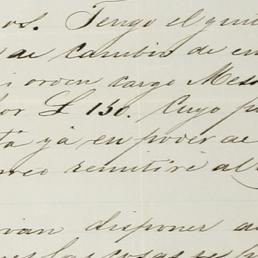 os. Tengo el gu
de cambio de
orden cargo Mess
or £ 150. Cuyo p
tá yá en poder de
reo remitiré al
van disponer
las cosas